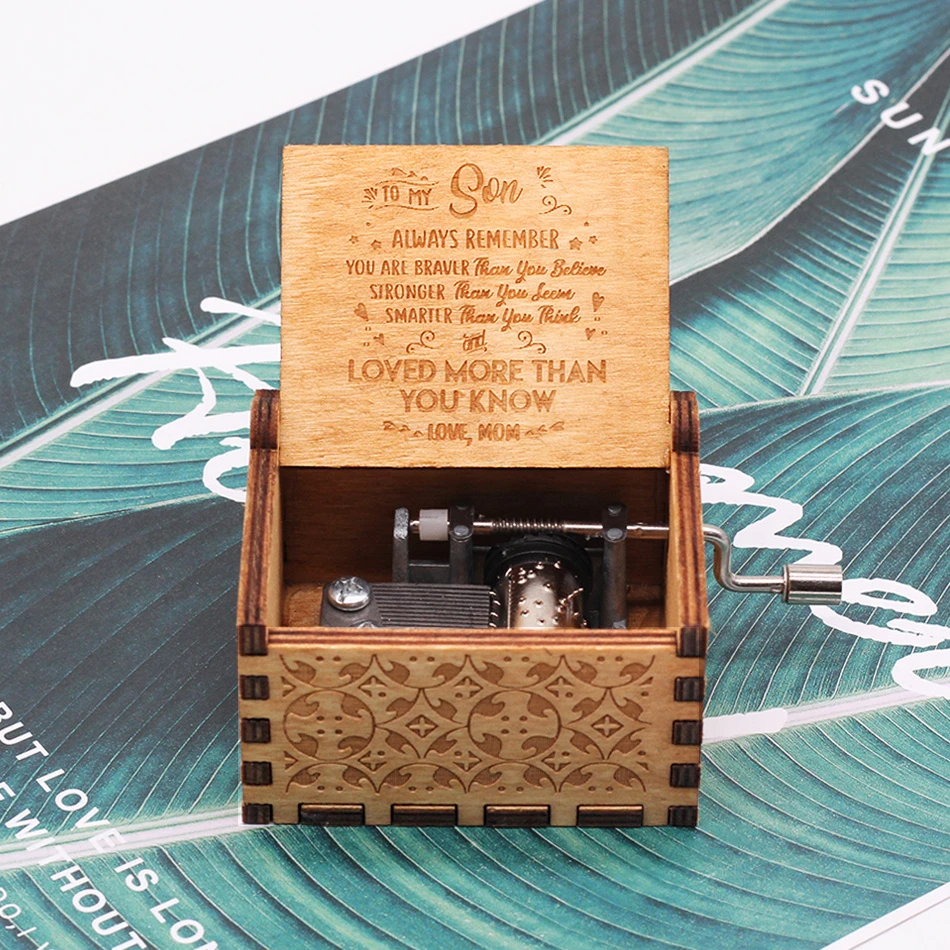 SUN
TO MY Son
ALWAYS REMEMBER
YOU ARE BRAVER Than You Believe
STRONGER Than You Seem
SMARTER Than You Think
and
LOVED MORE THAN
YOU KNOW
LOVE, MOM
BUT LOVE IS LON
WITHOUT